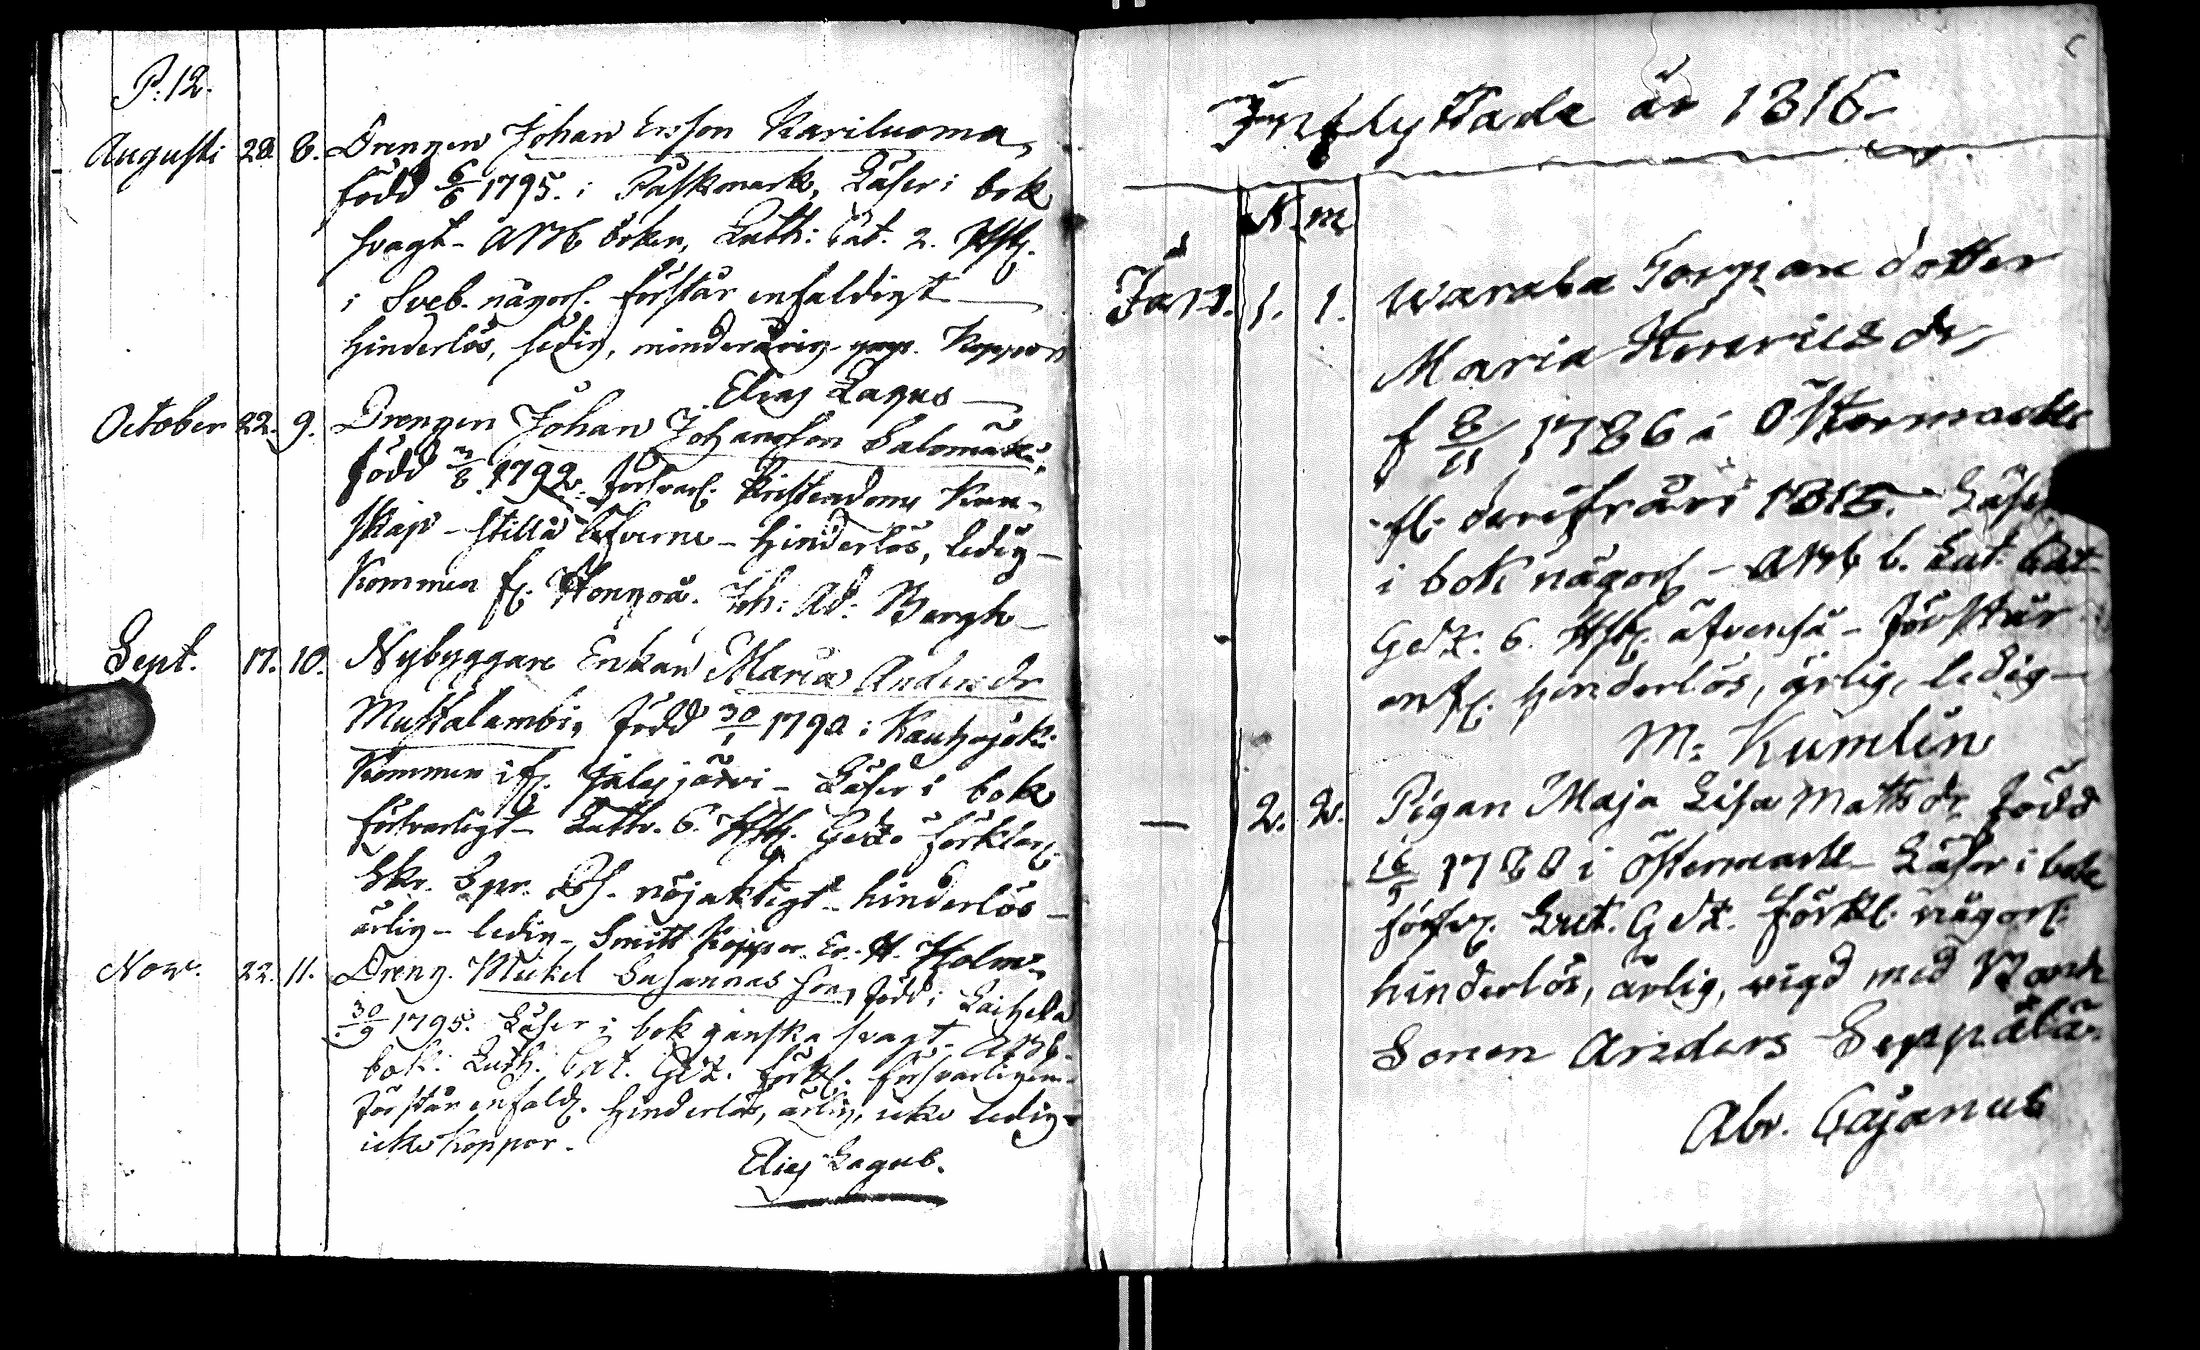 P. 12.
Augusti 28. 8. Drengen Johan Ersson Kariluoma,
född 6/6 1795. i Påskmark, Läser i bok
svagt - AMb boken, Luth: Cat. 2. Hfst.
i Sveb. någorl. förstår enfaldigt
hinderlös, ledig, minderårig Koppor
Elias Lagus
October 22. 9. Drengen Johan Johansson Salomäki,
född 1792. försvarl. Kristendoms Kun-
skap - stilla lefverne - hinderlös, ledig -
Kommen fr. Joh: Ad: Bergh
Sept. 17. 10. Nybyggare Enkan Maria Andersdr
Mustalambi, född 30/1 1790 i Kauhajoki
Kommen ifr. Jalasjärvi - Läser i bok
försvarligt - Luth. 6. Hfst. Gedz. förklar.
Skr. Spr. nöjaktigt - hinderlös -
ärlig - ledig - Smitt Koppor. Er. H. Holm
Nov. 22. 11. Dreng. Mickel Susannas son, född i Laihela
30/9 1795. Läser i bok ganska svagt - AMb-
bok: Luth. Cat. Gedz. förkl. försvarligen -
förstår enfald. hinderlös, ärlig, icke ledig -
icke koppor.
Elias Lagus.
Inflyttade år 1816
N. m
Jan. 1. 1. Waraba Torpare dotter
Maria Henricsdr
f 8/11 1786 i Östermark
fl. derifrån 1815. Läser
i bok någorl - AMb b. Lut. Cat
Gedz. 6. Hfst. äfvenså - förstår
enf. hinderlös, ärlig, ledig -
M: Kumlin
— 2. 2. Pigan Maja Lisa Mattsdr född
1788 i Östermark - Läser i bok
försv. Lut. Gedz. förkl. någorl.
hinderlös, ärlig, vigd med Bonde
Sonen Anders Seppälä.
Abr. Cajanus